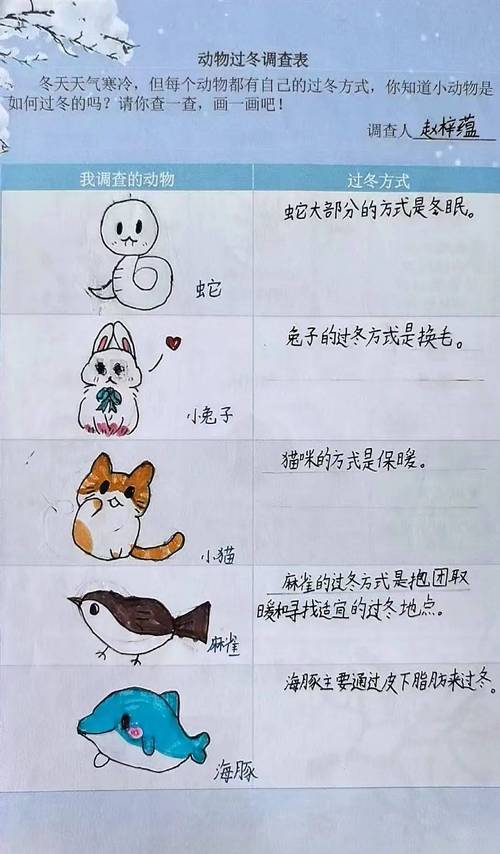 动物过冬调查表
冬天天气寒冷，但每个动物都有自己的过冬方式，你知道小动物是
如何过冬的吗？请你查一查，画一画吧！
调查人 赵梓蕴
我调查的动物 过冬方式
蛇大部分的方式是冬眠。
蛇
兔子的过冬方式是换毛。
小兔子
猫咪的方式是保暖。
小猫
麻雀的过冬方式是抱团取
暖和寻找适宜的过冬地点。
麻雀
海豚主要通过皮下脂肪来过冬。
海豚